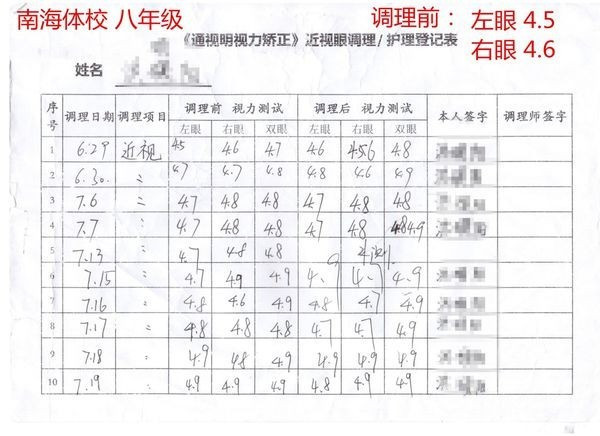 南海体校 八年级
调理前： 左眼 4.5
右眼 4.6
《通视明视力矫正》近视眼调理/护理登记表
姓名
序号 调理日期 调理项目 调理前 视力测试 调理后 视力测试 本人签字 调理师签字
左眼 右眼 双眼 左眼 右眼 双眼
1 6.29 近视 4.5 4.6 4.7 4.6 4.8
2 6.30 〃 4.7 4.7 4.8 4.8 4.6 4.9
3 7.6 〃 4.7 4.8 4.8 4.7 4.8 4.8
4 7.7 〃 4.7 4.8 4.8 4.7 4.8 4.9
5 7.13 〃 4.7 4.8 4.8
6 7.15 〃 4.7 4.9 4.9 4.9
7 7.16 〃 4.8 4.6 4.9 4.8 4.7 4.9
8 7.17 〃 4.8 4.8 4.8 4.7 4.7 4.9
9 7.18 〃 4.9 4.8 4.9 4.9 4.9 4.9
10 7.19 〃 4.9 4.9 4.9 4.8 4.9 4.9